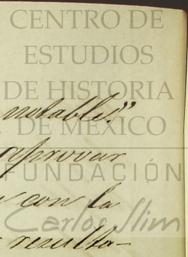 CENTRO DE
ESTUDIOS
DE HISTORIA
DE MÉXICO
FUNDACIÓN
Carlos Slim
notables"
aprovar
con la
resulta-